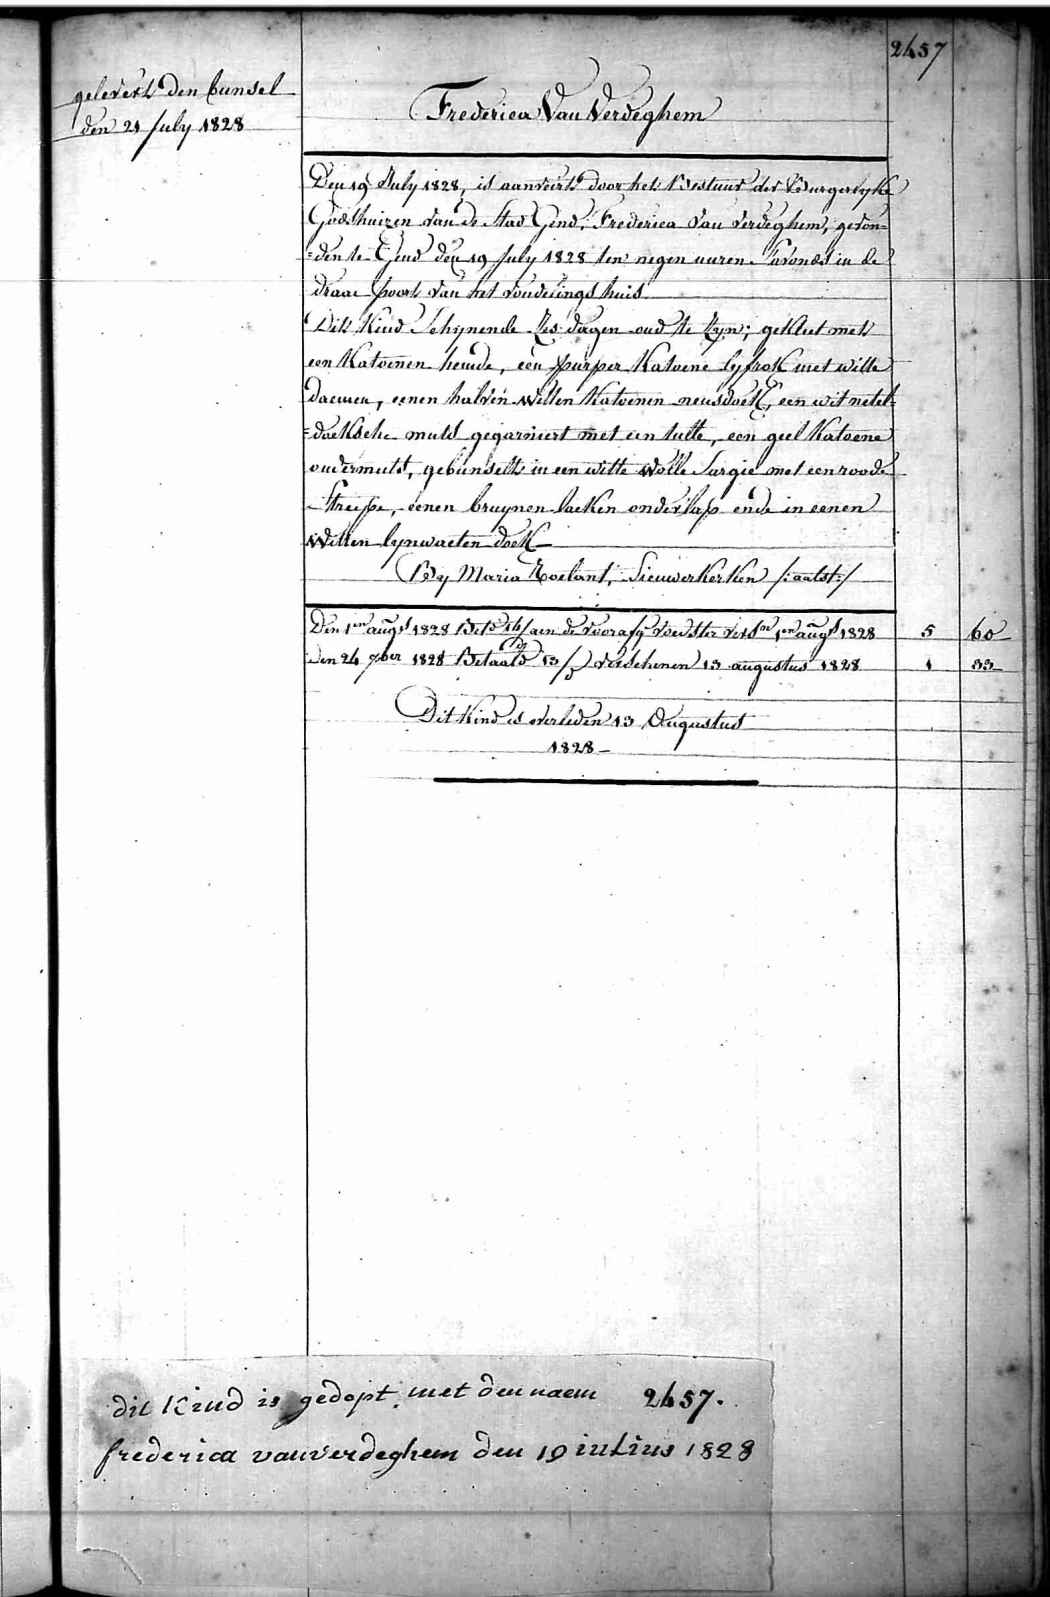 2457
gelevert den bunsel
den 21 July 1828
Frederica Van Verdeghem
Den 19 July 1828, is aanveirt door het Bestuur der Burgerlyke
Godshuizen van de Stad Gend, Frederica Van Verdeghem, gevon=
=den te Gend den 19 July 1828 ten negen uuren s'avonds in de
draae poort van het vondelings huis
Dit Kind Schynende zes dagen oud te zyn; gekleet met
een Katoenen hemde, een purper Katoene lyfrok met witte
daemen, eenen halven witten Katoenen neusdoek, een wit netel=
=doeksche muts gegarniert met een tulle, een geel Katoene
ondermuts, gebunselt in een witte wolle Sargie met een roode
Streepe, eenen bruynen laeken onderlap ende in eenen
witten lynwaeten doek
By Maria Roelant, Nieuwerkerken /:aalst:/
Den 1en augs 1828 Bet. aen de voorafg voedster vers. 1en augs 1828 5 60
den 24 7ber 1828 Betaald 13/ verschenen 13 augustus 1828 1 33
Dit Kind is overleden 13 Augustus
1828
dit Kind is gedopt met den naem 2457.
frederica vanverdeghem den 19 iulius 1828